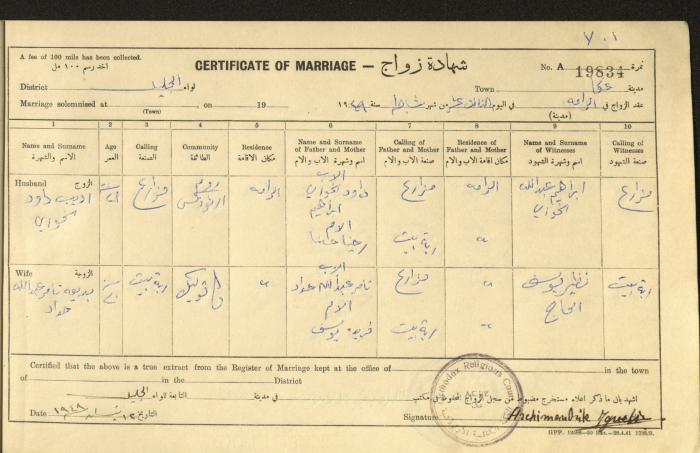 ٧٠١
A fee of 100 mils has been collected.
أخذ رسم ١٠٠ مل
CERTIFICATE OF MARRIAGE — شهادة زواج
No. A 19834 نمرة
District لواء الجليل
Town عكا مدينة
Marriage solemnised at , on 19
(Town)
عقد الزواج في الرامه في اليوم من شهر سنة ١٩٤٩
(مدينة)
1 2 3 4 5 6 7 8 9 10
Name and Surname Age Calling Community Residence Name and Surname of Father and Mother Calling of Father and Mother Residence of Father and Mother Name and Surname of Witnesses Calling of Witnesses
الاسم والشهرة العمر الصنعة الطائفة مكان الاقامة اسم وشهرة الاب والام صنعة الاب والام مكان اقامة الاب والام اسم وشهرة الشهود صنعة الشهود
Husband الزوج
اديب داود الخوري
مزارع
روم ارثوذكس
الرامه
الاب
داود الخوري ابراهيم
الام
مزارع
ربة بيت
الرامه
"
ابراهيم عبدالله الخوري
مزارع
Wife الزوجة
بديعه تامر عبدالله حداد
ربة بيت
كاثوليك
"
الاب
تامر عبدالله حداد
الام
فريده يوسف
مزارع
ربة بيت
"
"
نظير يوسف الحاج
ربة بيت
Certified that the above is a true extract from the Register of Marriage kept at the office of in the town
of in the District
اشهد بان ما ذكر اعلاه مستخرج مضبوط من سجل الزواج المحفوظ في مكتب
في مدينة التابعة للواء الجليل
Date ١٩٤٩ التاريخ
Orthodox Religious Court
ACRE
Signature Archimandrite